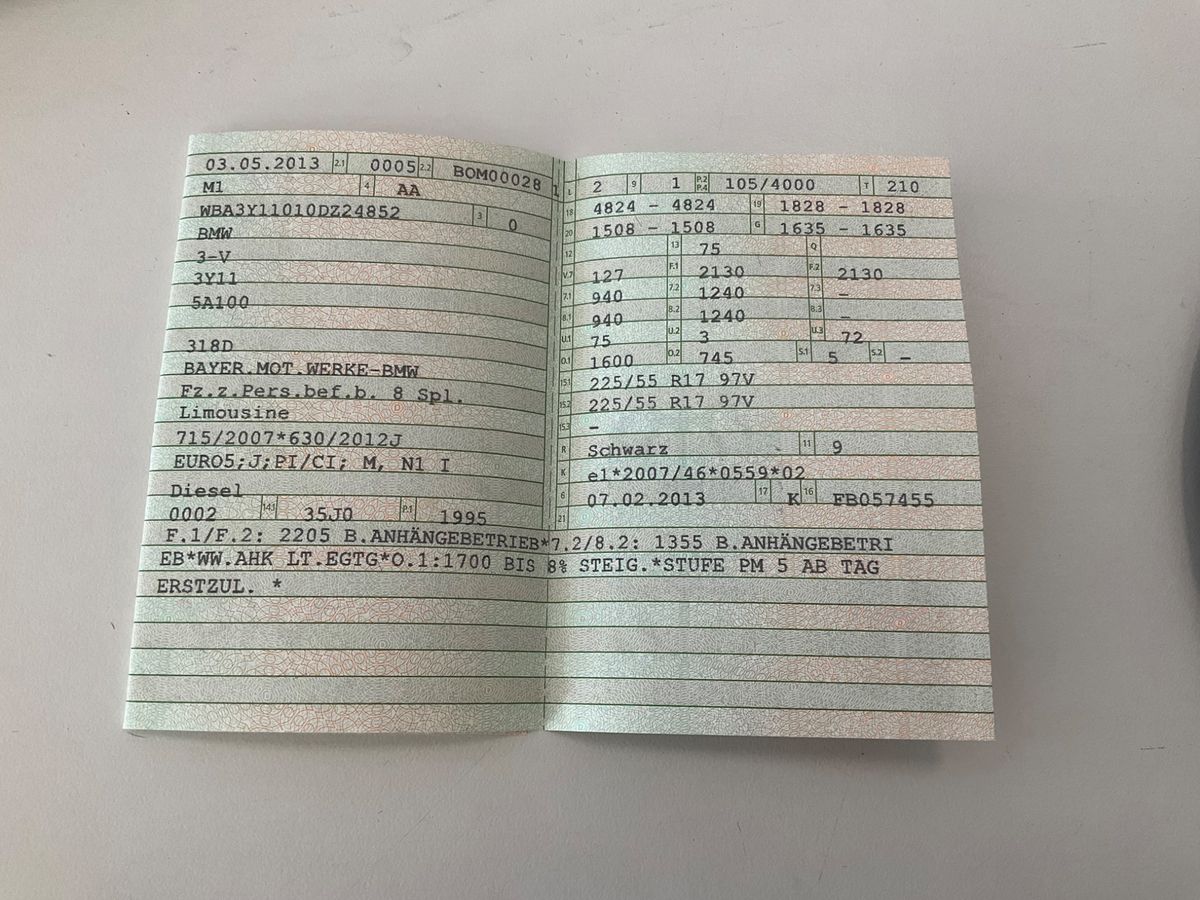 03.05.2013 2.1 0005 2.2 BOM00028 1
M1 4 AA
WBA3Y11010DZ24852 3 0
BMW
3-V
3Y11
5A100
318D
BAYER.MOT.WERKE-BMW
Fz.z.Pers.bef.b. 8 Spl.
Limousine
715/2007*630/2012J
EURO5;J;PI/CI; M, N1 I
Diesel
0002 14.1 35J0 P.1 1995
L 2 9 1 P.2 P.4 105/4000 T 210
18 4824 - 4824 19 1828 - 1828
20 1508 - 1508 G 1635 - 1635
12 13 75 Q
V.7 127 F.1 2130 F.2 2130
7.1 940 7.2 1240 7.3 -
8.1 940 8.2 1240 8.3 -
U.1 75 U.2 3 U.3 72
O.1 1600 O.2 745 S.1 5 S.2 -
15.1 225/55 R17 97V
15.2 225/55 R17 97V
15.3 -
R Schwarz 11 9
K e1*2007/46*0559*02
6 07.02.2013 17 K 16 FB057455
21
F.1/F.2: 2205 B.ANHÄNGEBETRIEB*7.2/8.2: 1355 B.ANHÄNGEBETRI
EB*WW.AHK LT.EGTG*O.1:1700 BIS 8% STEIG.*STUFE PM 5 AB TAG
ERSTZUL. *